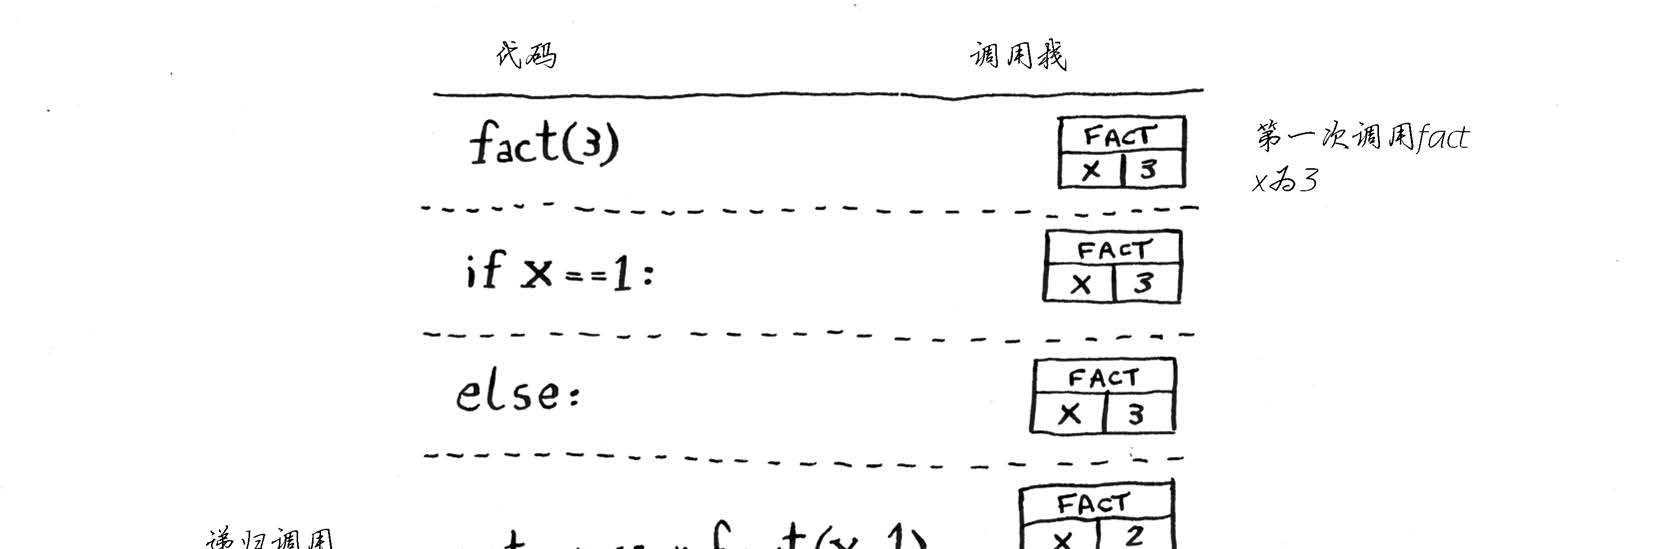 代码 调用栈
fact(3)
FACT
X 3
第一次调用fact
x为3
if x==1:
FACT
X 3
else:
FACT
X 3
递归调用
fact(x-1)
FACT
X 2